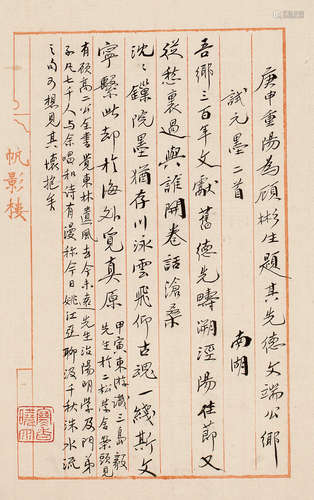 庚申重陽為顧彬生題其先德文端公鄉
試元墨二首 南湖
吾鄉三百年文獻舊德先疇溯涇陽佳節又
從愁裏過與誰開卷話滄桑
沈沈鏁院墨猶存川泳雲飛仰古魂一綫斯文
寧繫此却於海外覓真原
甲寅東游識三島毅
先生於二松學舍案頭見
有顧高二公全書覺東林遺風去今未衰先生治陽明學及門弟
子凡七千人与余唱和詩有漫称今日姚江亞聊汲千秋洙水流
之句可想見其懷抱矣
帆影樓